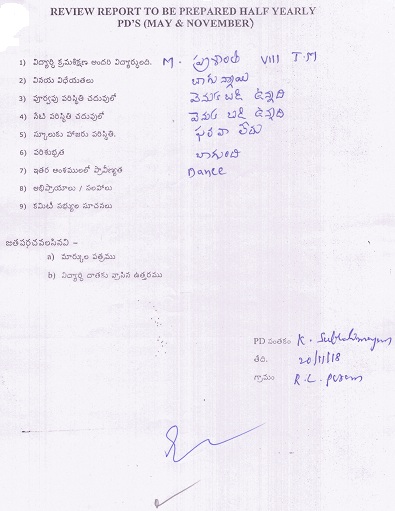 REVIEW REPORT TO BE PREPARED HALF YEARLY
PD'S (MAY & NOVEMBER)
1) విద్యార్థి క్రమశిక్షణ అందరి విద్యార్థులది. M. ప్రశాంత్ VIII T.M
2) వినయ విధేయతలు బాగున్నాయి
3) పూర్వపు పరిస్థితి చదువులో వెనుకబడి ఉన్నది
4) నేటి పరిస్థితి చదువులో వెనుకబడి ఉన్నది
5) స్కూలుకు హాజరు పరిస్థితి. పరవాలేదు
6) పరిశుభ్రత బాగుంది
7) ఇతర అంశములలో ప్రావీణ్యత Dance
8) అభిప్రాయాలు / సలహాలు
9) కమిటీ సభ్యుల సూచనలు
జతపరచవలసినవి –
a) మార్కుల పత్రము
b) విద్యార్థి దాతకు వ్రాసిన ఉత్తరము
PD సంతకం K.
తేది. 20/11/18
గ్రామం R. L. puram